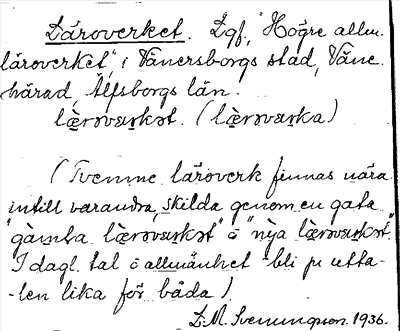 Läroverket. Lgf., "Högre allm.
läroverket" i Vänersborgs stad, Väne
härad, Älfsborgs län.
læ̀rəvæṛkət. (læ̀rəvæṛka)
(Tvenne läroverk finnas nära
intill varandra, skilda genom en gata
"gàmla læ̀rəvæṛkət" o "nỳa læ̀rəvæṛkət".
I dagl. tal o allmänhet bli ju utta-
-len lika för båda).
L.M. Svenungson. 1936.